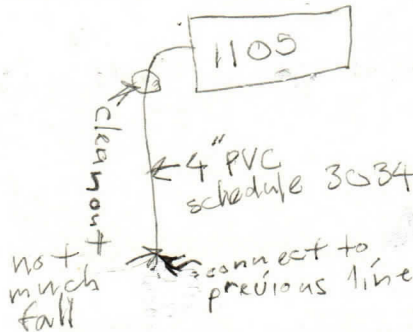 1105
cleanout
4" PVC
schedule 3034
not
much
fall
connect to
previous line